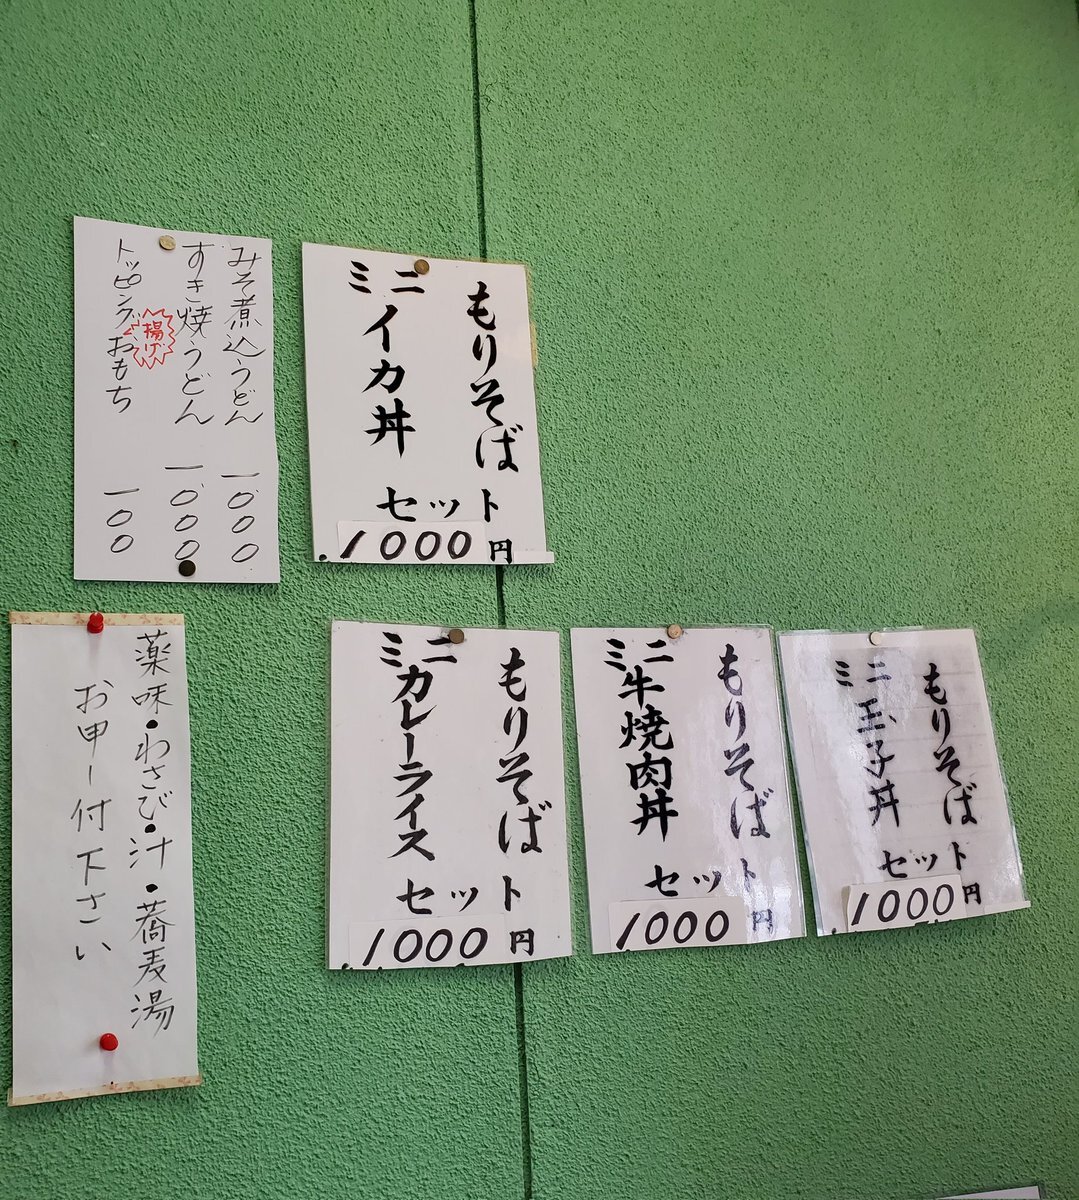 みそ煮込うどん 一、〇〇〇
すき焼うどん 一、〇〇〇
揚げ
トッピングおもち 一〇〇
もりそば
ミニ
イカ丼
セット
1000円
薬味・わさび・汁・蕎麦湯
お申し付下さい
もりそば
ミニ
カレーライス
セット
1000円
もりそば
ミニ
牛焼肉丼
セット
1000円
もりそば
ミニ
玉子丼
セット
1000円